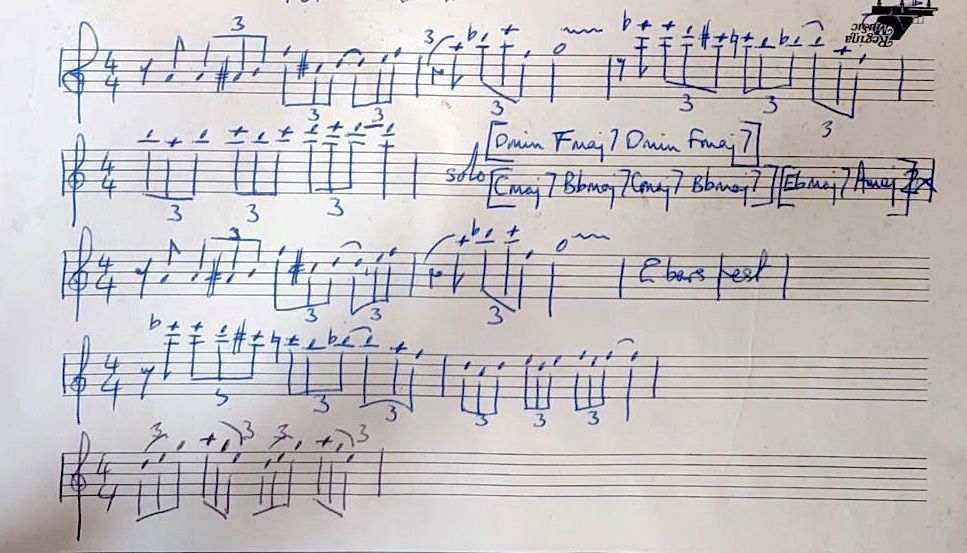 Regina
Music
4
4
3
3
3
3
3
3
3
3
4
4
3
3
3
solo
[Dmin Fmaj7 Dmin Fmaj7]
[Cmaj7 Bbmaj7 Cmaj7 Bbmaj7] [Ebmaj7 Amaj7] 2x
4
4
3
3
3
3
2 bars rest
4
4
3
3
3
3
3
3
4
4
3
3
3
3